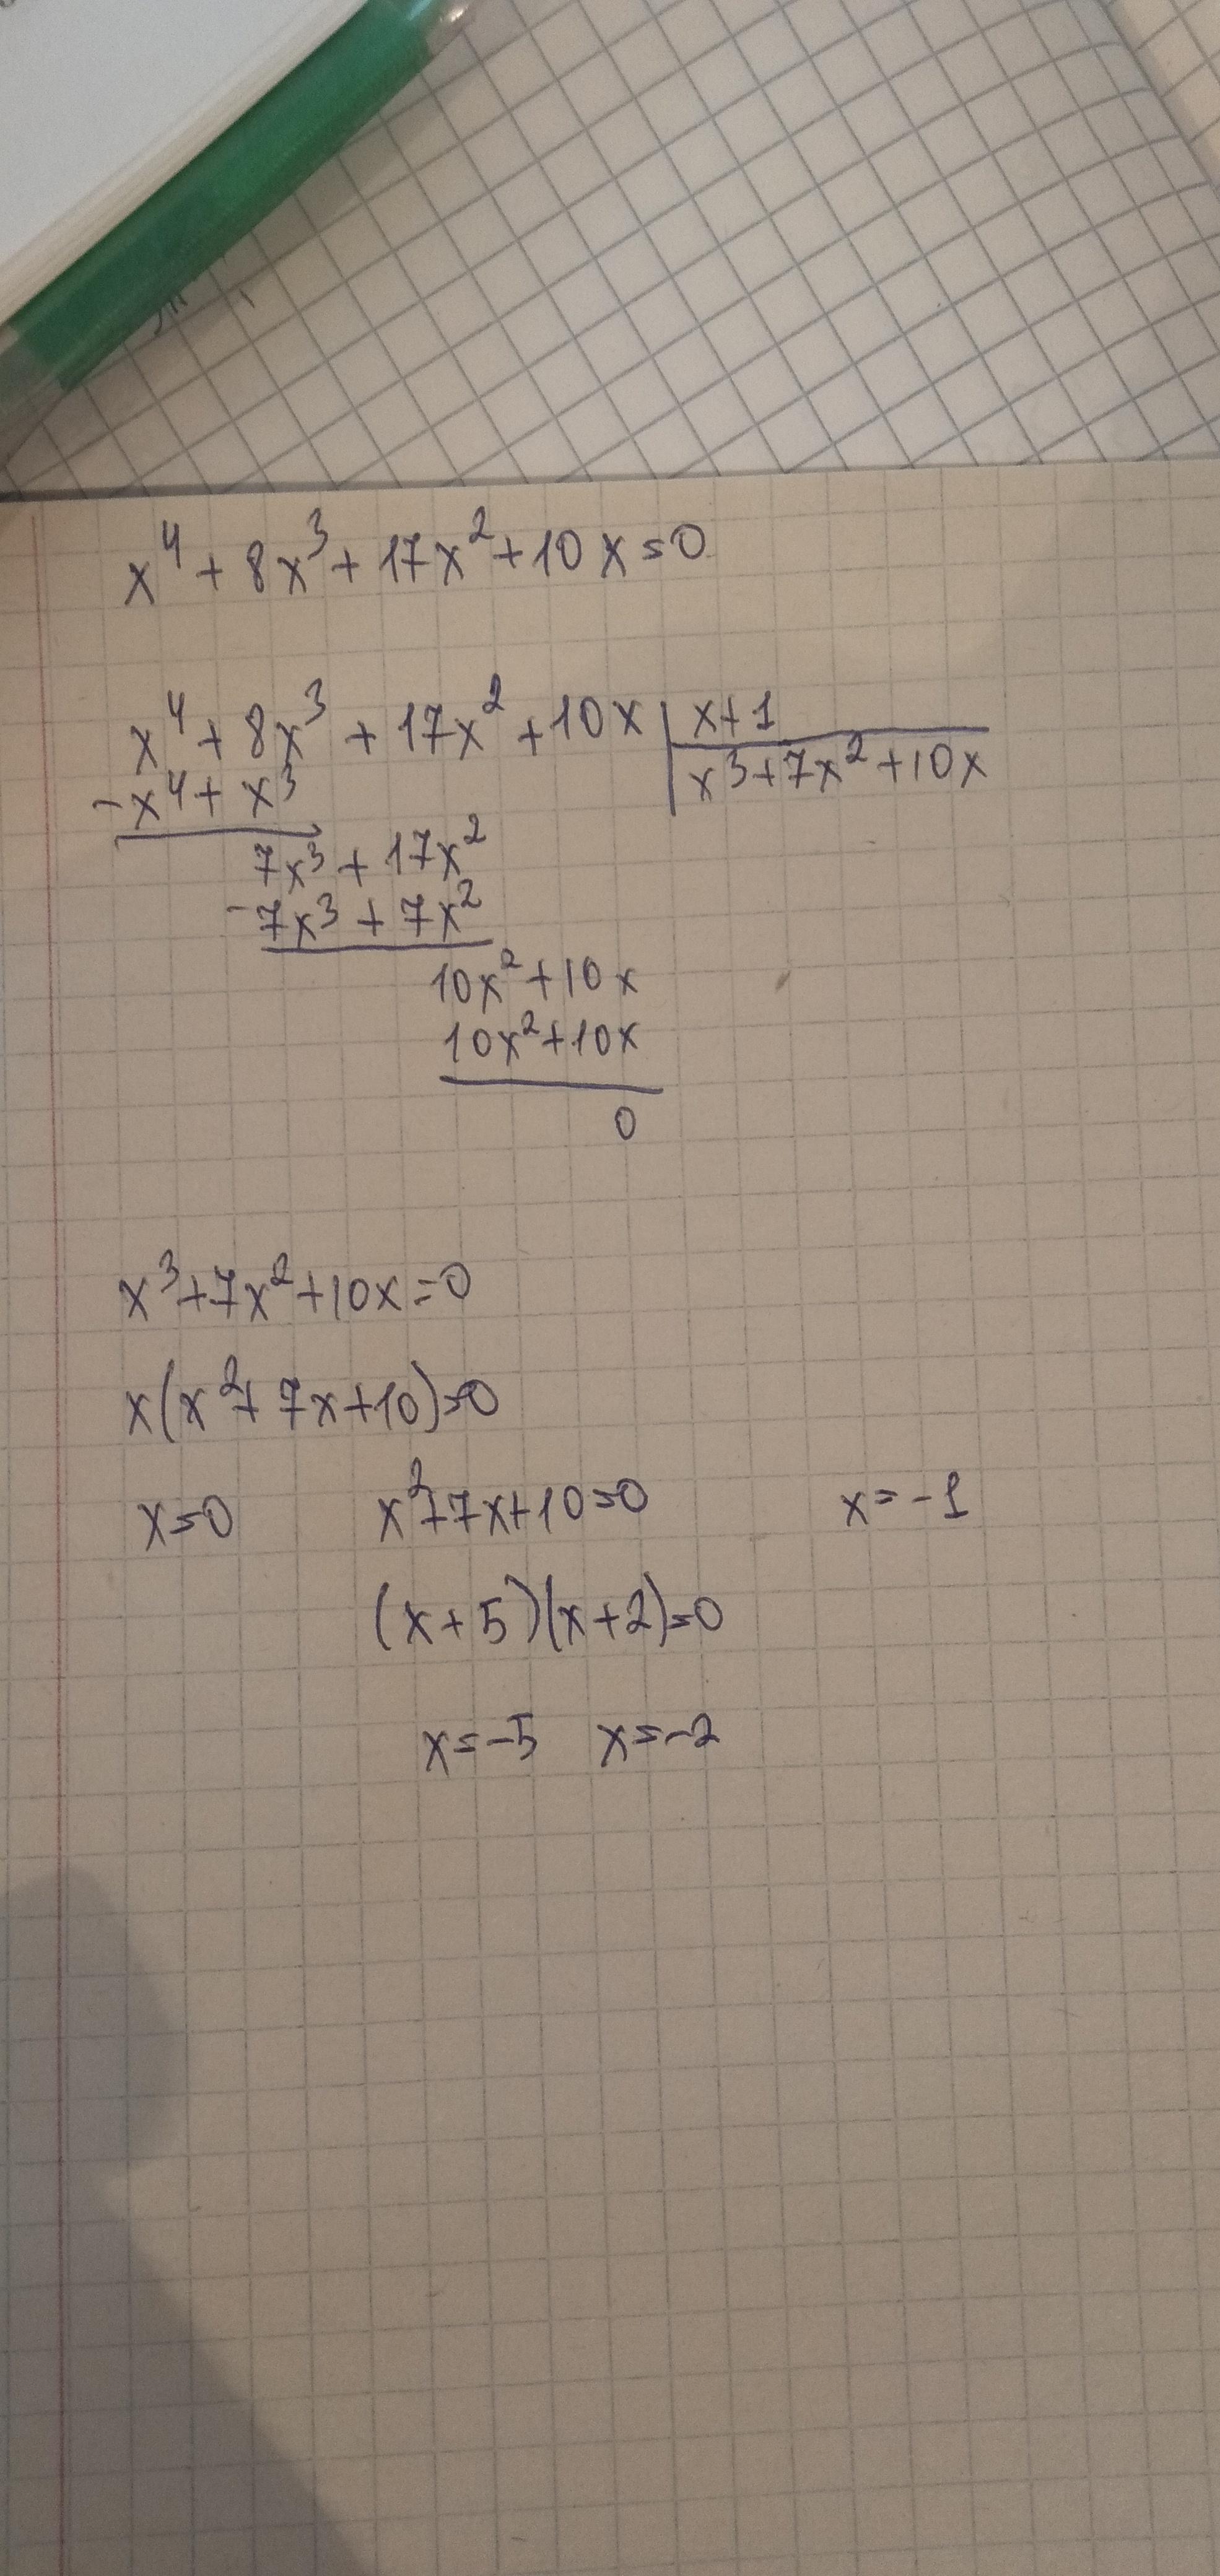 x⁴ + 8x³ + 17x² + 10x = 0
x⁴ + 8x³ + 17x² + 10x | x + 1
- x⁴ + x³ | x³ + 7x² + 10x
7x³ + 17x²
- 7x³ + 7x²
10x² + 10x
10x² + 10x
0
x³ + 7x² + 10x = 0
x(x² + 7x + 10) = 0
x = 0 x² + 7x + 10 = 0 x = -1
(x + 5)(x + 2) = 0
x = -5 x = -2